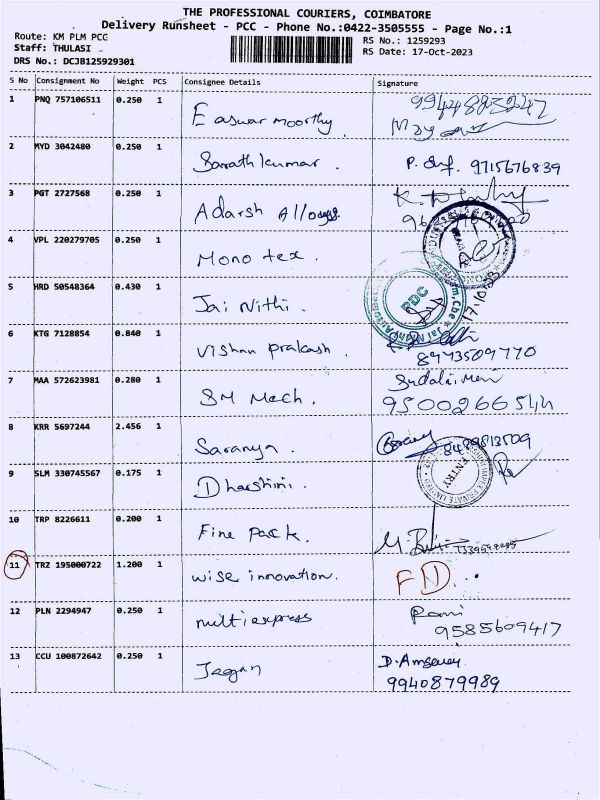 THE PROFESSIONAL COURIERS, COIMBATORE
Delivery Runsheet - PCC - Phone No.:0422-3505555 - Page No.:1
Route: KM PLM PCC
RS No.: 1259293
Staff: THULASI
RS Date: 17-Oct-2023
DRS No.: DCJB125929301
S No Consignment No Weight PCS Consignee Details Signature
1 PNQ 757106511 0.250 1 Easwar moorthy
2 MYD 3042480 0.250 1 Sarath kumar. 9715676839
3 PGT 2727568 0.250 1 Adarsh Alloys.
4 VPL 220279705 0.250 1 Mono tex.
5 HRD 50548364 0.430 1 Jai Nithi. PDC
6 KTG 7128854 0.840 1 Vishnu prakash. 8973509770
7 MAA 572623981 0.280 1 SM Mech. 9500266544
8 KRR 5697244 2.456 1 Saranya. 8489813509
9 SLM 330745567 0.175 1 Dharshini. ENTRY
10 TRP 8226611 0.200 1 Fine pack.
11 TRZ 195000722 1.200 1 wise innovation. FND...
12 PLN 2294947 0.250 1 multi express Rami
9585609417
13 CCU 100872642 0.250 1 Jegan
9940879989